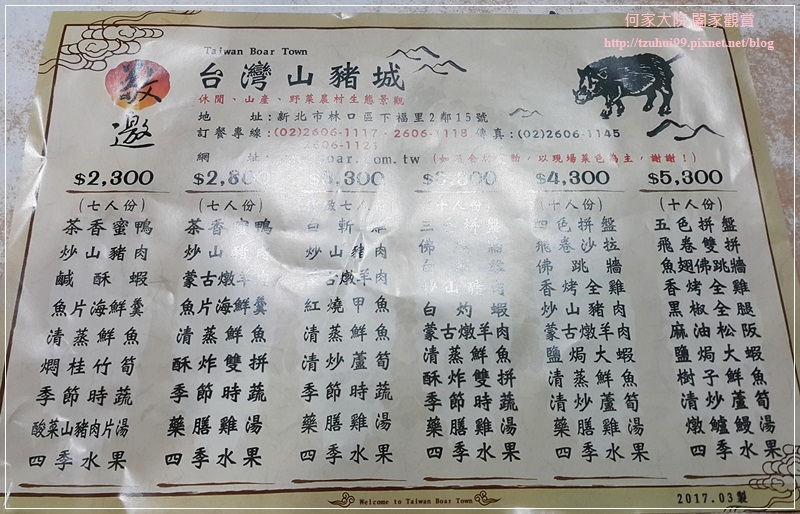 何家大院 闔家觀賞
http://tzuhui99.pixnet.net/blog
敬邀
Taiwan Boar Town
台灣山豬城
休閒、山產、野菜農村生態景觀
地 址:新北市林口區下福里2鄰15號
訂餐專線:(02)2606-1117·2606-1118 傳真:(02)2606-1145
2606-1121
網 址: boar.com.tw (如 ,以現場菜色為主,謝謝!)
$2,300
(七人份)
茶香蜜鴨
炒山豬肉
鹹酥蝦
魚片海鮮羹
清蒸鮮魚
燜桂竹筍
季節時蔬
酸菜山豬肉片湯
四季水果
$2,800
(七人份)
茶香蜜鴨
炒山豬肉
蒙古燉羊肉
魚片海鮮羹
清蒸鮮魚
酥炸雙拼
季節時蔬
藥膳雞湯
四季水果
,300
七人份)
白斬
炒山豬肉
古燉羊肉
紅燒甲魚
清蒸鮮魚
清炒蘆筍
季節時蔬
藥膳雞湯
四季水果
(十人份)
佛
炒山豬肉
白灼蝦
蒙古燉羊肉
清蒸鮮魚
酥炸雙拼
季節時蔬
藥膳雞湯
四季水果
$4,300
(十人份)
四色拼盤
飛卷沙拉
佛跳牆
香烤全雞
炒山豬肉
蒙古燉羊肉
鹽焗大蝦
清蒸鮮魚
清炒蘆筍
藥膳雞湯
四季水果
$5,300
(十人份)
五色拼盤
飛卷雙拼
魚翅佛跳牆
香烤全雞
黑椒全腿
麻油松阪
鹽焗大蝦
樹子鮮魚
清炒蘆筍
燉鱸鰻湯
四季水果
Welcome to Taiwan Boar Town
2017.03製